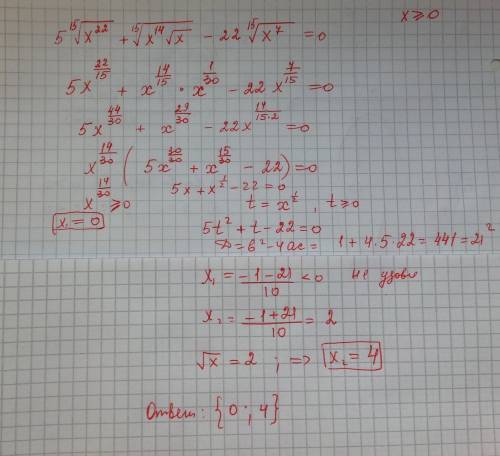 5 ¹⁵√(x²²) + ¹⁵√(x¹⁴√x) − 22 ¹⁵√(x⁷) = 0    x ≥ 0
5x^(22/15) + x^(14/15) • x^(1/30) − 22x^(7/15) = 0
5x^(44/30) + x^(29/30) − 22x^(14/(15·2)) = 0
x^(14/30) (5x^(30/30) + x^(15/30) − 22) = 0
x^(14/30) ≥ 0    5x + x^(1/2) − 22 = 0
x₁ = 0    t = x^(1/2), t ≥ 0
5t² + t − 22 = 0
D = b² − 4ac = 1 + 4·5·22 = 441 = 21²
x₁ = (−1 − 21)/10 < 0 не удовл
x₂ = (−1 + 21)/10 = 2
√x = 2 ; => x₂ = 4
Ответ: {0 ; 4}